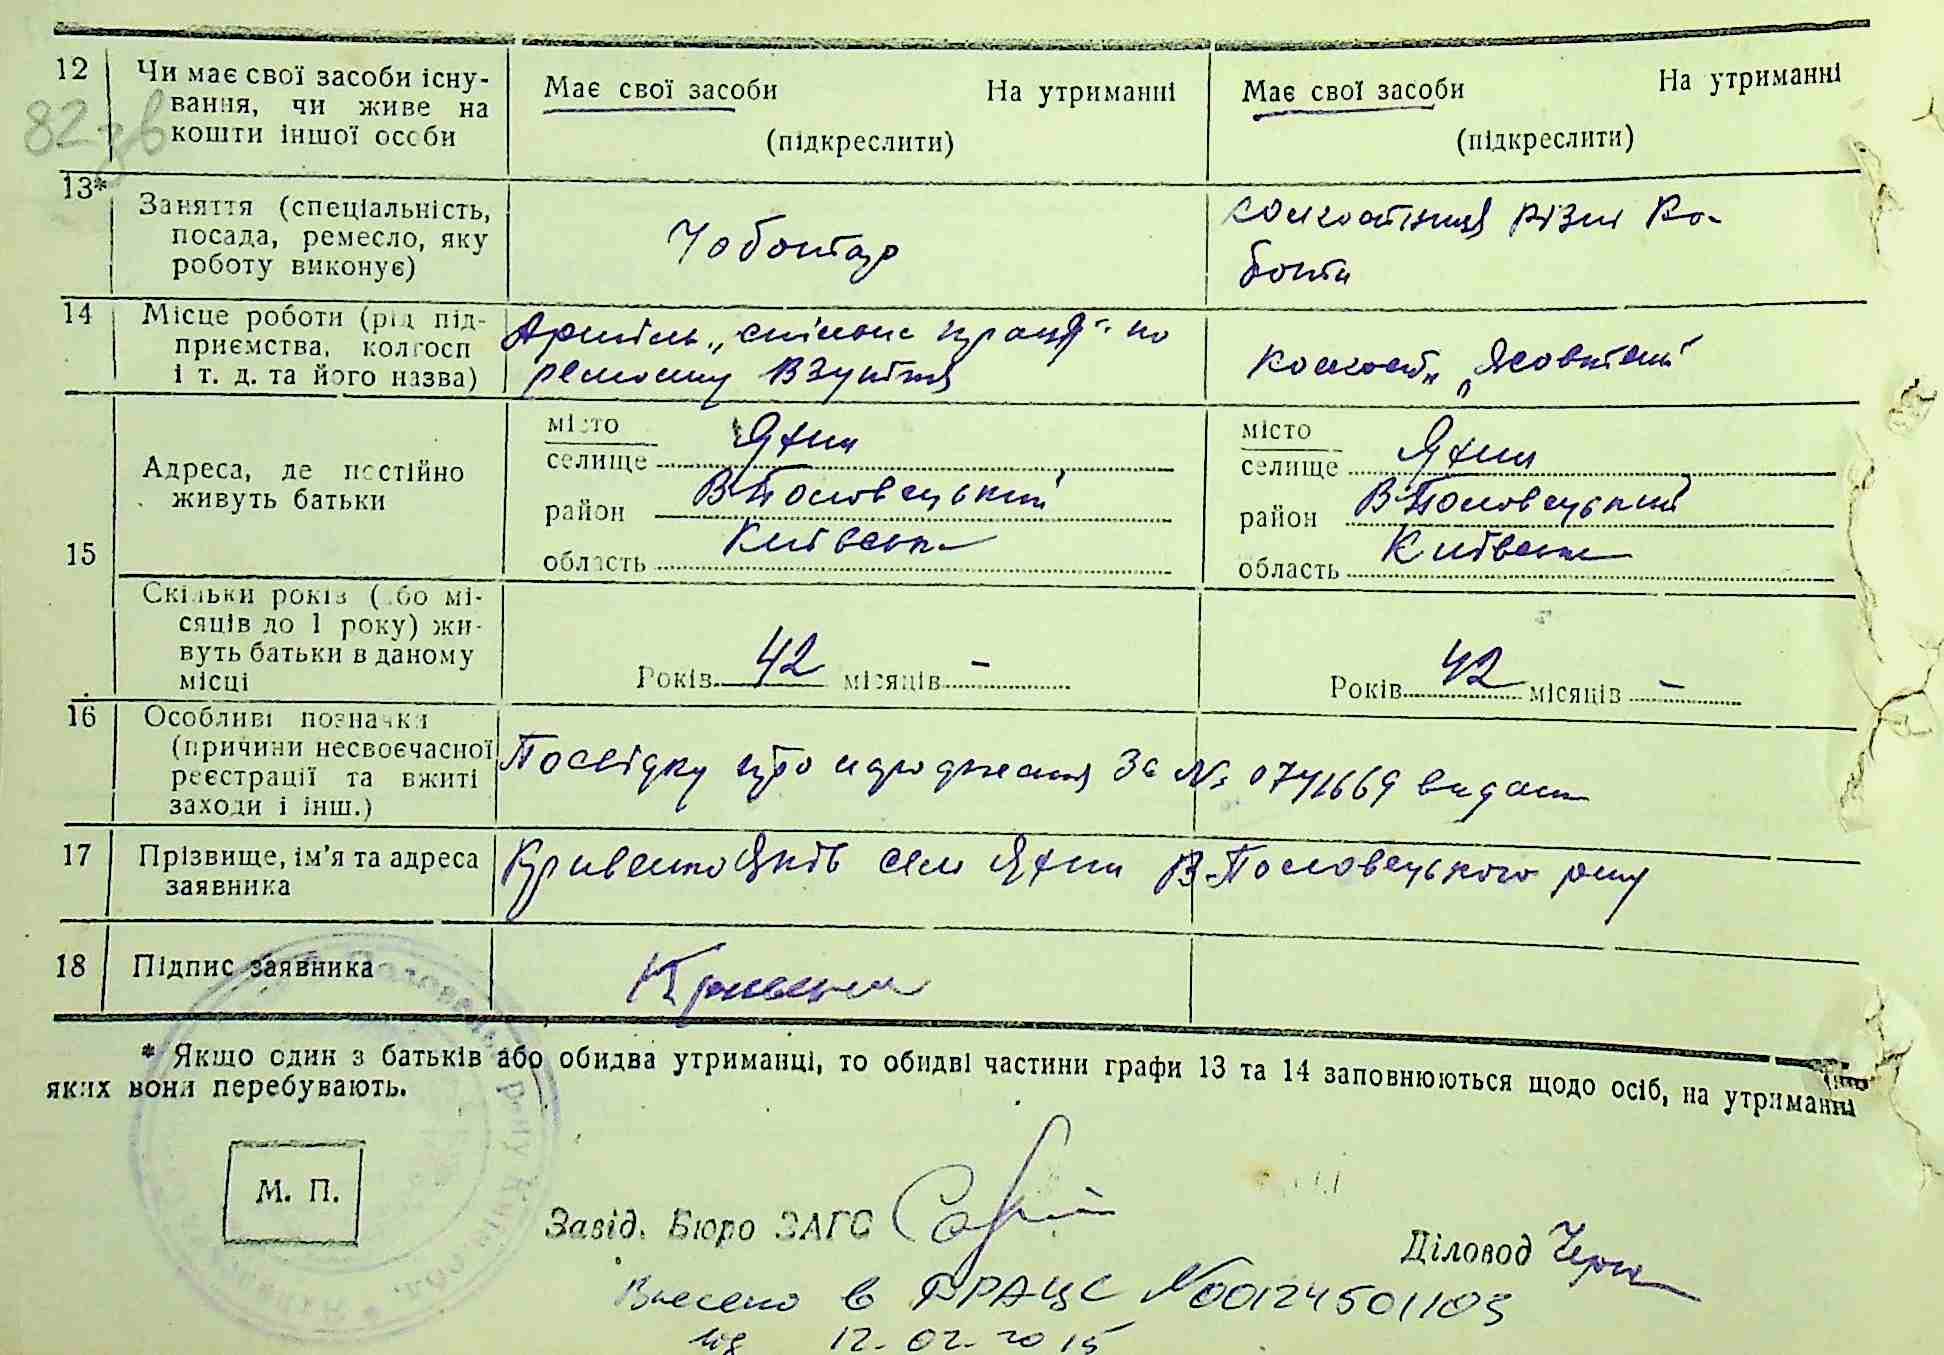 12 Чи має свої засоби існу-
вання, чи живе на
кошти іншої особи
Має свої засоби На утриманні
(підкреслити)
Має свої засоби На утриманні
(підкреслити)
82 зв
13* Заняття (спеціальність,
посада, ремесло, яку
роботу виконує)
Чоботар
колгоспниця різні ро-
боти
14 Місце роботи (рід під-
приємства, колгосп
і т. д. та його назва)
Артіль „спільна праця" по
ремонту взуття
колгосп „Жовтень"
15 Адреса, де постійно
живуть батьки
місто
селище Яхни
район В-Половецький
область Київська
місто
селище Яхни
район В-Половецький
область Київська
Скільки років (або мі-
сяців до 1 року) жи-
вуть батьки в даному
місці
Років 42 місяців –
Років 42 місяців –
16 Особливі позначки
(причини несвоєчасної
реєстрації та вжиті
заходи і інш.)
Посвідку про народження За № 0741669 видан
17 Прізвище, ім'я та адреса
заявника
Кривенко Яків село Яхни В-Половецького р-ну
18 Підпис заявника
Кривенко
* Якщо один з батьків або обидва утриманці, то обидві частини графи 13 та 14 заповнюються щодо осіб, на утриманні
яких вони перебувають.
М. П.
Завід. Бюро ЗАГС
Діловод
Внесено в ДРАЦС №00124501103
від 12.02.2015